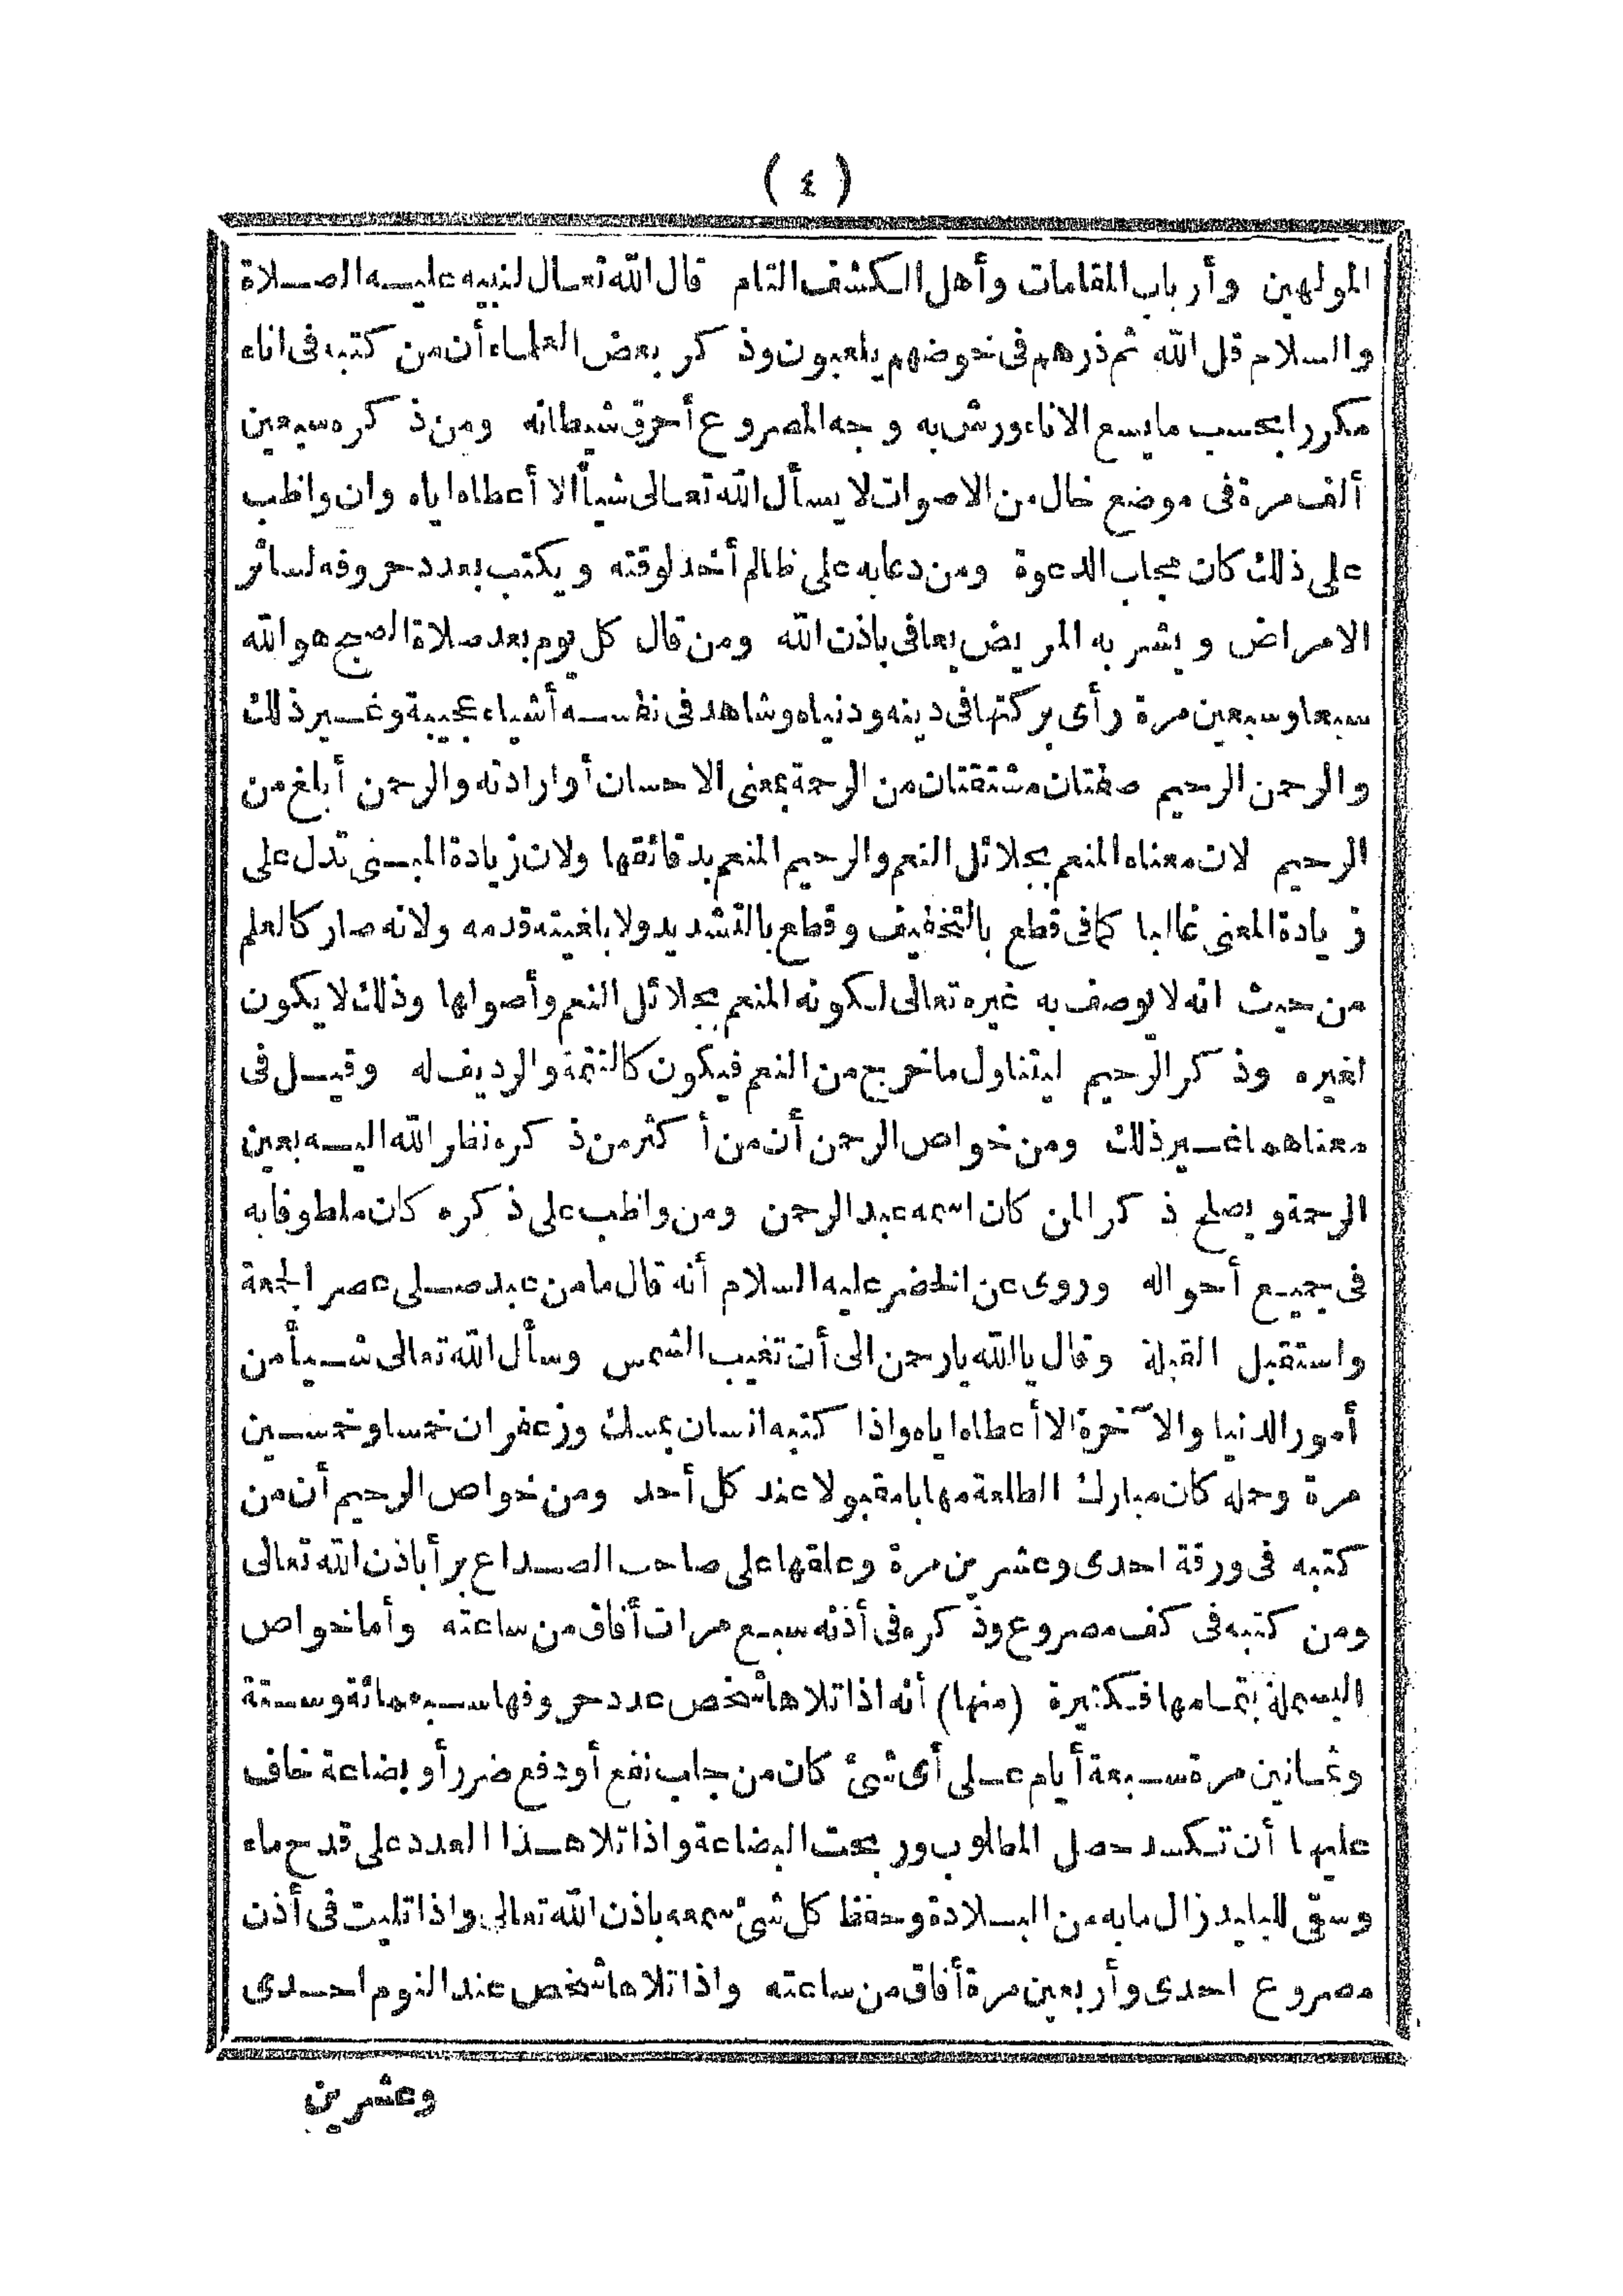 ( ٤ )
المولهين وأرباب المقامات وأهل الكشف التام قال الله تعالى لنبيه عليه الصلاة
والسلام قل الله ثم ذرهم فى خوضهم يلعبون وذكر بعض العلماء أن من كتبه فى اناء
مكررا بحسب ما يسع الاناء ورش به وجه المصروع أحرق شيطانه ومن ذكره سبعين
ألف مرة فى موضع خال من الاصوات لا يسأل الله تعالى شيأ الا أعطاه اياه وان واظب
على ذلك كان مجاب الدعوة ومن دعا به على ظالم أخذ لوقته ويكتب بعدد حروفه لسائر
الامراض ويشربه المريض يعافى باذن الله ومن قال كل يوم بعد صلاة الصبح هو الله
سبعا وسبعين مرة رأى بركتها فى دينه ودنياه وشاهد فى نفسه أشياء عجيبة وغير ذلك
والرحمن الرحيم صفتان مشتقتان من الرحمة بمعنى الاحسان أو ارادته والرحمن أبلغ من
الرحيم لان معناه المنعم بجلائل النعم والرحيم المنعم بدقائقها ولان زيادة المبنى تدل على
زيادة المعنى غالبا كما فى قطع بالتخفيف وقطع بالتشديد ولا بلغيته قدمه ولانه صار كالعلم
من حيث انه لا يوصف به غيره تعالى لكونه المنعم بجلائل النعم وأصولها وذلك لا يكون
لغيره وذكر الرحيم ليتناول ما خرج من النعم فيكون كالتتمة والرديف له وقيل فى
معناهما غير ذلك ومن خواص الرحمن أن من أكثر من ذكره نظر الله اليه بعين
الرحمة ويصلح ذكرا لمن كان اسمه عبد الرحمن ومن واظب على ذكره كان ملطوفا به
فى جميع أحواله وروى عن الخضر عليه السلام أنه قال ما من عبد صلى عصر الجمعة
واستقبل القبلة وقال يا الله يا رحمن الى أن تغيب الشمس وسأل الله تعالى شيأ من
أمور الدنيا والآخرة الا أعطاه اياه واذا كتبه انسان بمسك وزعفران خمسا وخمسين
مرة وحمله كان مبارك الطلعة مهابا مقبولا عند كل أحد ومن خواص الرحيم أن من
كتبه فى ورقة احدى وعشرين مرة وعلقها على صاحب الصداع برأ باذن الله تعالى
ومن كتبه فى كف مصروع وذكره فى أذنه سبع مرات أفاق من ساعته وأما خواص
البسملة بتمامها فكثيرة (منها) أنه اذا تلاها شخص عدد حروفها سبعمائة وستة
وثمانين مرة سبعة أيام على أى شئ كان من جلب نفع أو دفع ضرر أو بضاعة خاف
عليها أن تكسد حصل المطلوب وربحت البضاعة واذا تلا هذا العدد على قدح ماء
وسقى للبليد زال ما به من البلادة وحفظ كل شئ سمعه باذن الله تعالى واذا تليت فى أذن
مصروع احدى وأربعين مرة أفاق من ساعته واذا تلاها شخص عند النوم احدى
وعشرين